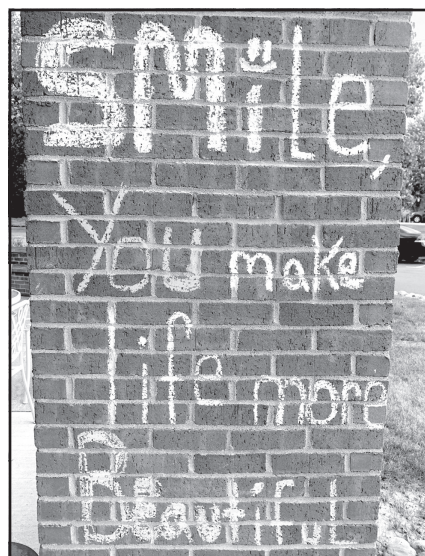 SMiLe,
You make
life more
Beautiful